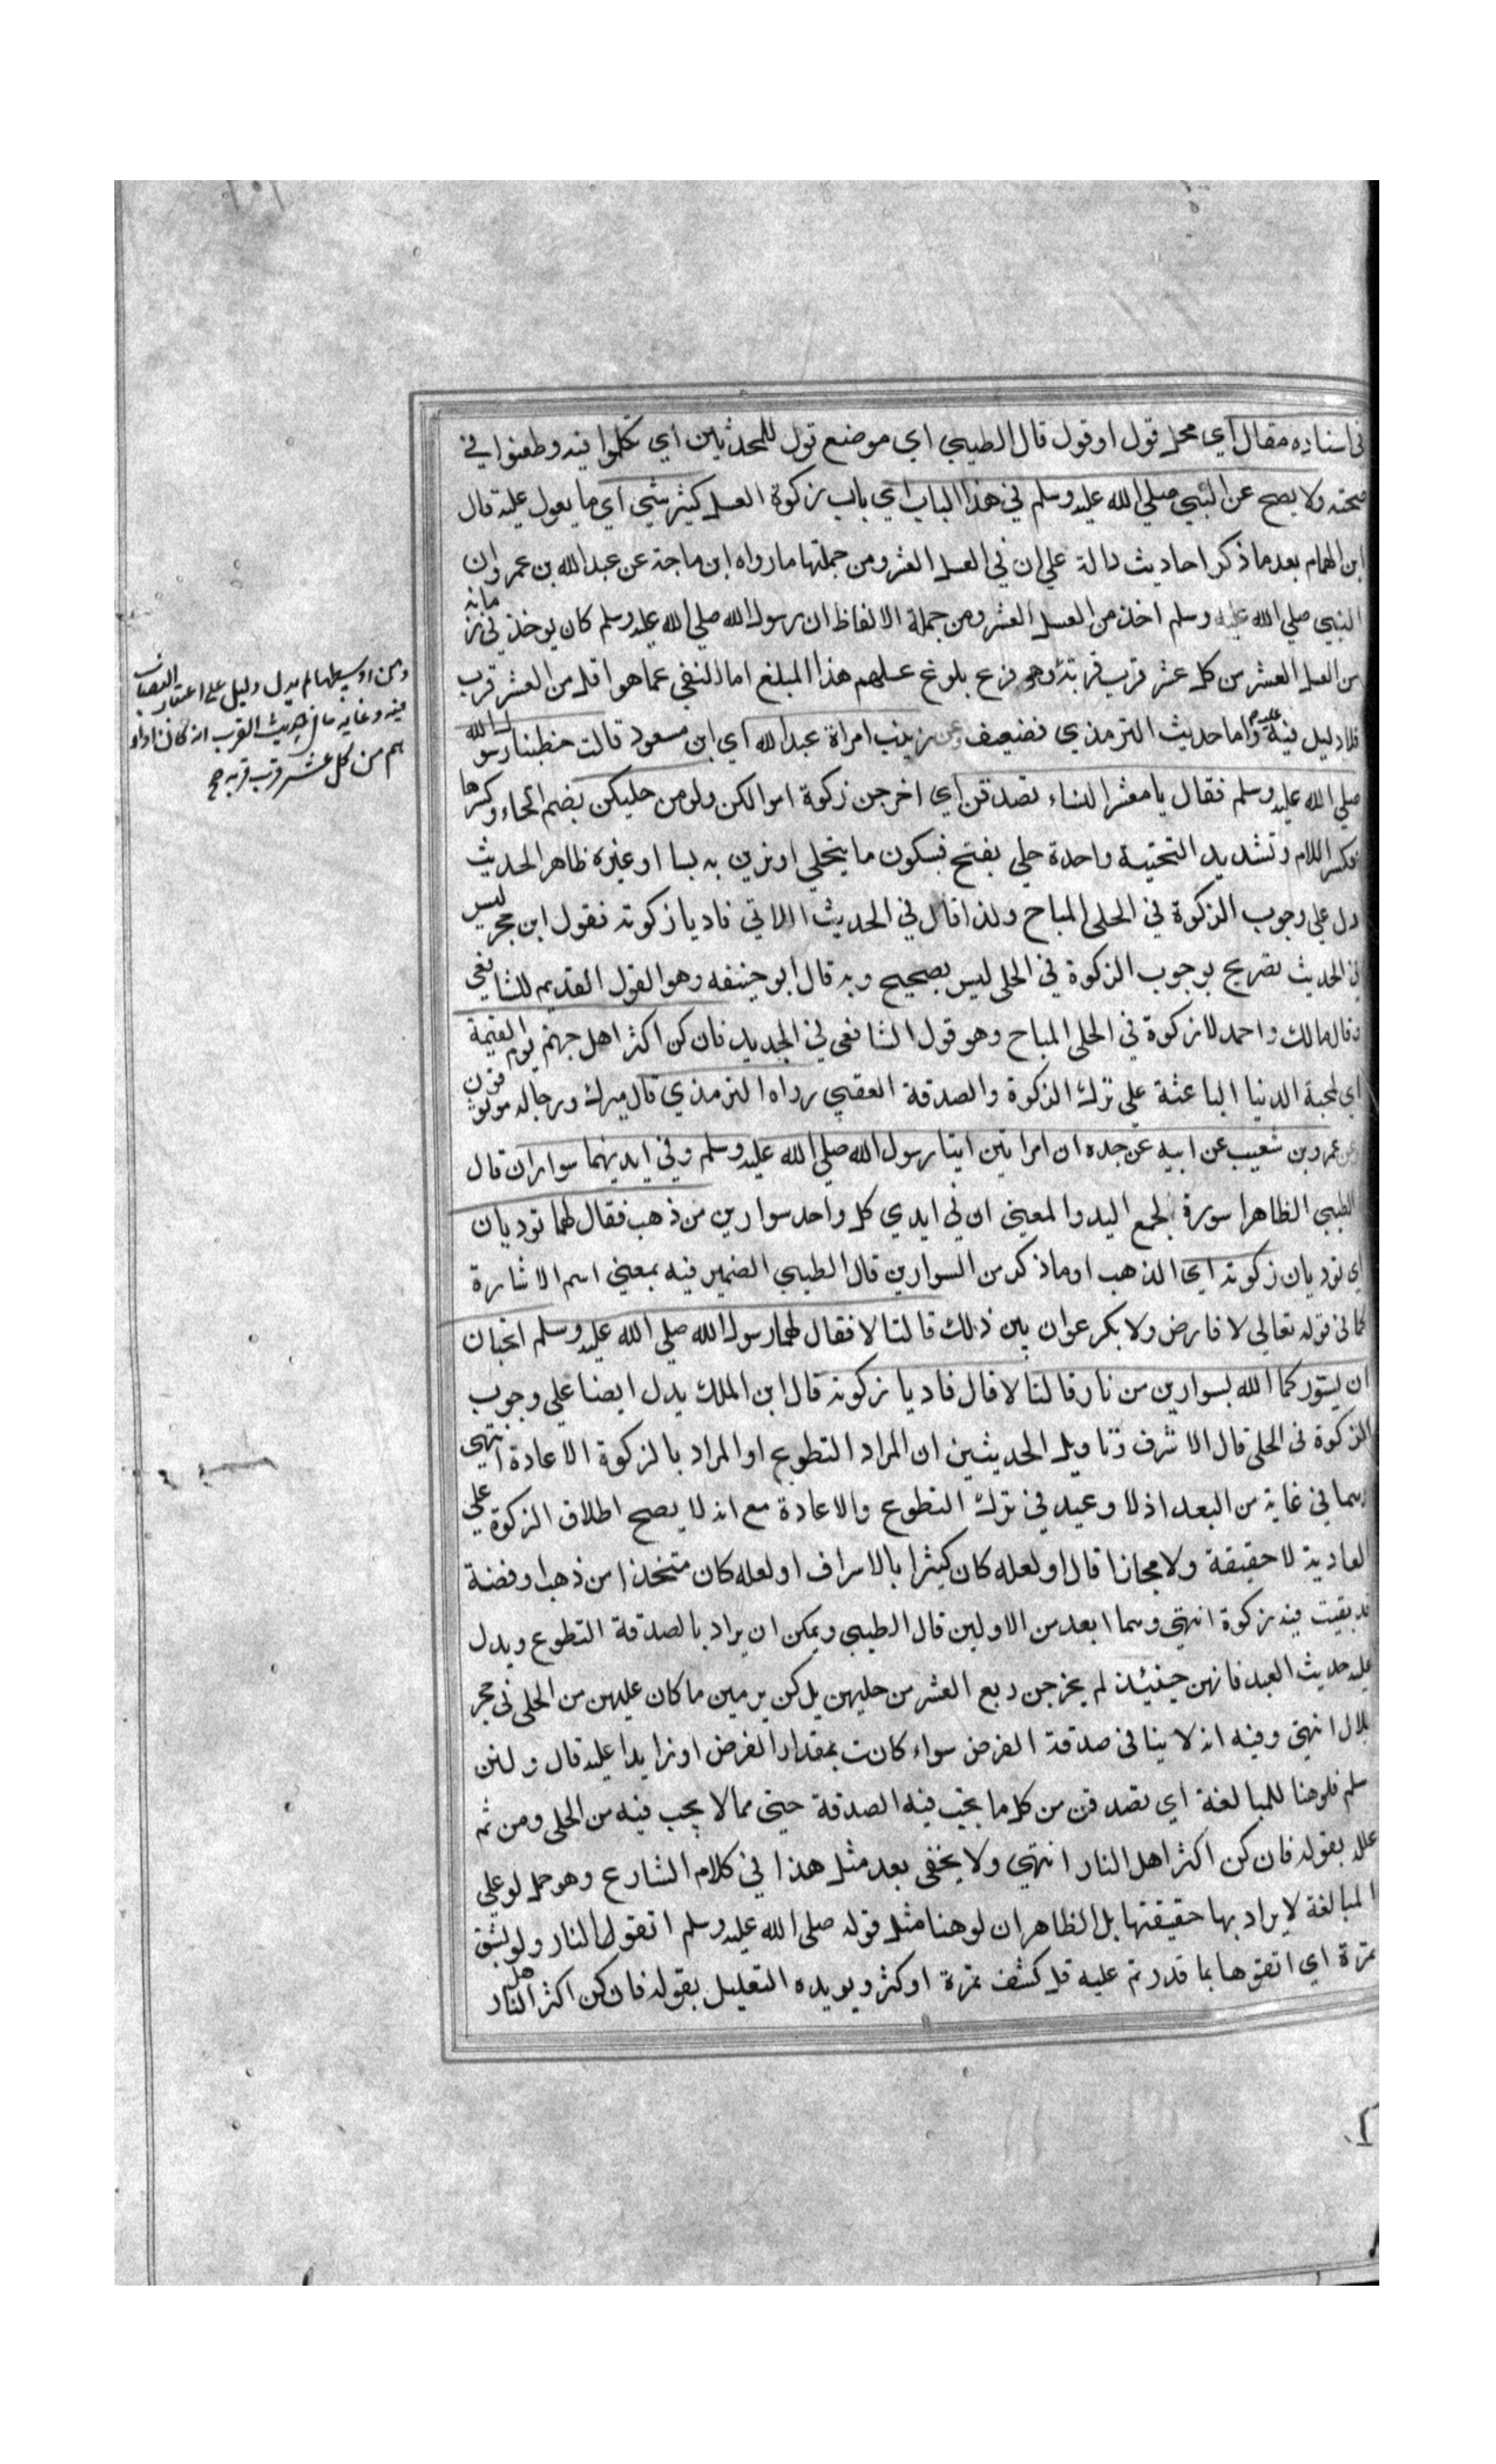 في اسناده مقال اي محل قول او قول قال الطيبي اي موضع قول للمحدثين اي تكلموا فيه وطعنوا في
صحته ولا يصح عن النبي صلي الله عليه وسلم في هذا الباب اي باب زكوة العسل كثير شيي اي ما يعول عليه قال
ابن الهمام بعد ما ذكر احاديث دالة علي ان في العسل العشر ومن جملتها ما رواه ابن ماجة عن عبدالله بن عمرو ان
النبي صلي الله عليه وسلم اخذ من العسل العشر ومن جملة الالفاظ ان رسول الله صلي الله عليه وسلم كان يوخذ في زمانه
من العسل العشر من كل عشر قرب قربة وهو فرع بلوغ عسلهم هذا المبلغ اما النفي عما هو اقل من العشر قرب
فلا دليل فيه عليه واما حديث الترمذي فضعيف وعن زينب امراة عبدالله اي ابن مسعود قالت خطبنا رسول الله
صلي الله عليه وسلم فقال يا معشر النساء تصدقن اي اخرجن زكوة اموالكن ولو من حليكن بضم الحاء وكسرها
فكسر اللام وتشديد التحتية واحدة حلي بفتح فسكون ما يتحلي اوتزين به لبسا او غيره ظاهر الحديث
دل علي وجوب الزكوة في الحلي المباح ولذا قال في الحديث الاتي فاديا زكوته فقول ابن حجر ليس
في الحديث تصريح بوجوب الزكوة في الحلي ليس بصحيح وبه قال ابو حنيفه وهو القول القديم للشافعي
وقال مالك واحمد لا زكوة في الحلي المباح وهو قول الشافعي في الجديد فان كن اكثر اهل جهنم يوم القيمة
اي لمحبة الدنيا الباعثة علي ترك الزكوة والصدقة العقبي رواه الترمذي قال ميرك ورجاله موثوقون
وعن عمرو بن شعيب عن ابيه عن جده ان امراتين اتيا رسول الله صلي الله عليه وسلم وفي ايديهما سواران قال
الطيبي الظاهر اسورة لجمع اليد والمعني ان في ايدي كل واحد سوارين من ذهب فقال لهما توديان
اي توديان زكوته اي الذهب او ما ذكر من السوارين قال الطيبي الضمير فيه بمعني اسم الاشارة
كما في قوله تعالي لا فارض ولا بكر عوان بين ذلك قالتا لا فقال لهما رسول الله صلي الله عليه وسلم اتحبان
ان يسوركما الله بسوارين من نار قالتا لا قال فاديا زكوته قال ابن الملك يدل ايضا علي وجوب
الزكوة في الحلي قال الاشرف وتاويل الحديثين ان المراد التطوع او المراد بالزكوة الاعادة انتهي
وهما في غاية من البعد اذ لا وعيد في ترك التطوع والاعادة مع انه لا يصح اطلاق الزكوة علي
العادية لا حقيقة ولا مجازا قال او لعله كان كثيرا بالاسراف او لعله كان متخذا من ذهب او فضة
قد بقيت فيه زكوة انتهي وهما ابعد من الاولين قال الطيبي ويمكن ان يراد بالصدقة التطوع ويدل
عليه حديث العيد فانهن حينئذ لم يخرجن ربع العشر من حليهن بل كن يرمين ما كان عليهن من الحلي في حجر
بلال انتهي وفيه انه لا ينافي صدقة الفرض سواء كانت بمقدار الفرض او زايدا عليه قال ولئن
سلم فلو هنا للمبالغة اي تصدقن من كل ما يجب فيه الصدقة حتي مما لا يجب فيه من الحلي ومن ثم
علل بقوله فان كن اكثر اهل النار انتهي ولا يخفي بعد مثل هذا في كلام الشارع وهو حمل لو علي
المبالغة لا يراد بها حقيقتها بل الظاهر ان لو هنا مثل قوله صلي الله عليه وسلم اتقوا النار ولو بشق
تمرة اي اتقوها بما قدرتم عليه قل كشف تمرة او كثر ويويده التعليل بقوله فان كن اكثر اهل النار
لم يدل دليل علي اعتبار النصاب
فيه وغاية ما في حديث القرب انه كان اداؤ
هم من كل عشر قرب قربه صح